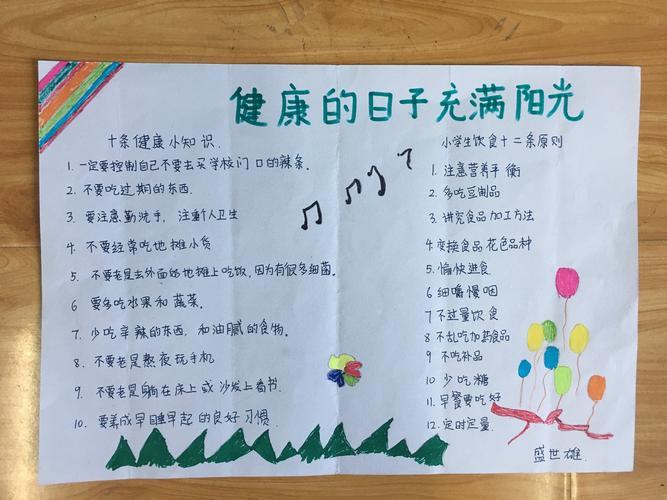 健康的日子充满阳光
十条健康小知识.
1. 一定要控制自己不要去买学校门口的辣条.
2. 不要吃过期的东西.
3. 要注意勤洗手, 注重个人卫生
4. 不要经常吃地摊小货
5. 不要老是去外面的地摊上吃饭, 因为有很多细菌.
6 要多吃水果和蔬菜.
7. 少吃辛辣的东西, 和油腻的食物.
8. 不要老是熬夜玩手机
9. 不要老是躺在床上或沙发上看书.
10. 要养成早睡早起的良好习惯.
小学生饮食十二条原则
1. 注意营养平衡
2. 多吃豆制品
3. 讲究食品加工方法
4. 变换食品花色品种
5. 愉快进食
6 细嚼慢咽
7 不过量饮食
8 不乱吃加热食品
9 不吃补品
10 少吃糖
11. 早餐要吃好
12. 定时定量.
盛世雄.